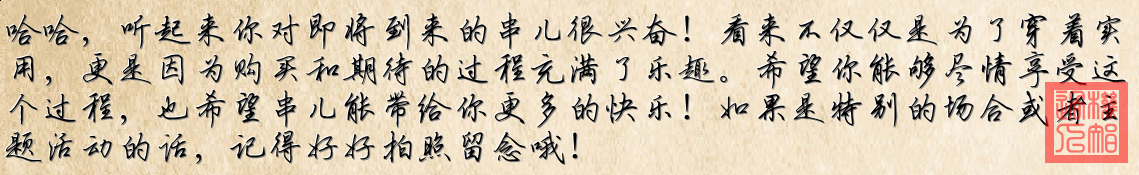 哈哈，听起来你对即将到来的串儿很兴奋！看来不仅仅是为了穿着实
用，更是因为购买和期待的过程充满了乐趣。希望你能够尽情享受这
个过程，也希望串儿能带给你更多的快乐！如果是特别的场合或者主
题活动的话，记得好好拍照留念哦！